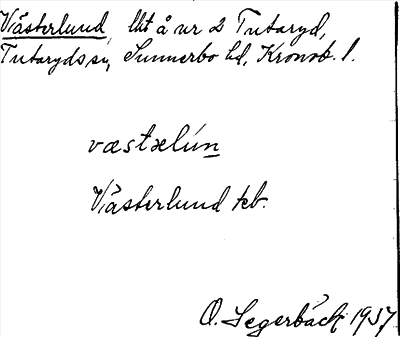 Västerlund, lht å nr 2 Tutaryd,
Tutaryds sn, Sunnerbo hd, Kronob. l.
væstælún
Västerlund tcb.
O. Segerbäck 1937